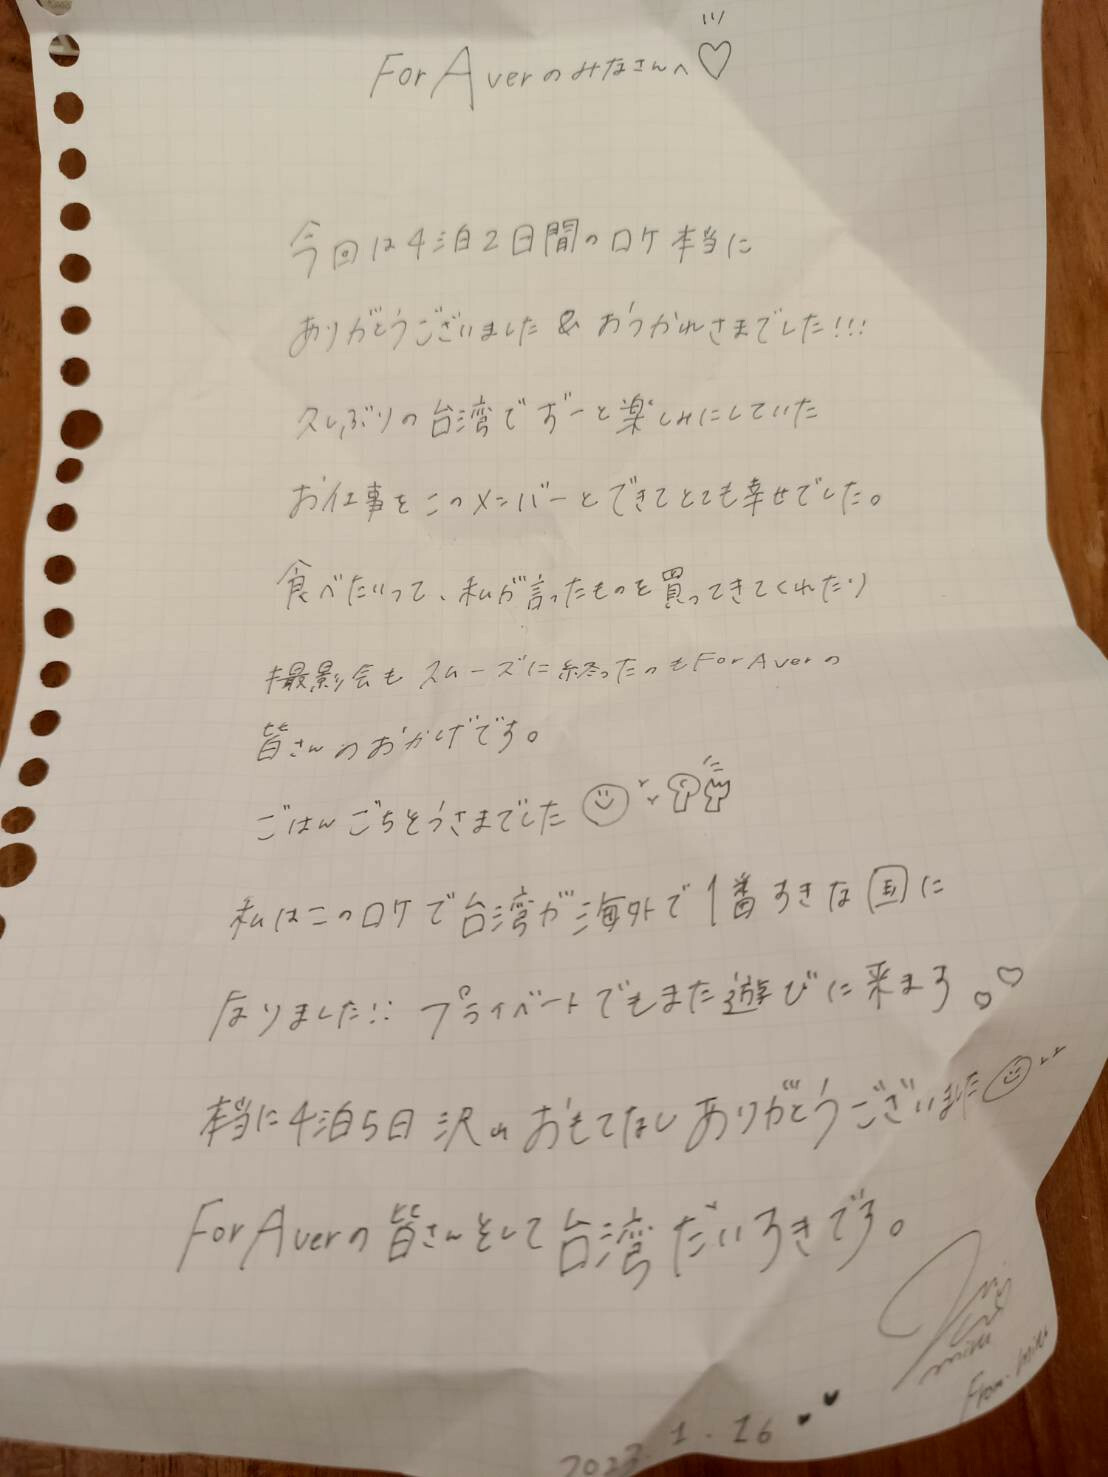 For Averのみなさんへ♡
今回は4泊2日間のロケ本当に
ありがとうございました & おつかれさまでした!!!
久しぶりの台湾でずーと楽しみにしていた
お仕事をこのメンバーとできてとても幸せでした。
食べたいって、私が言ったものを買ってきてくれたり
撮影会もスムーズに終ったのもFor Averの
皆さんのおかげです。
ごはんごちそうさまでした
私はこのロケで台湾が海外で1番すきな国に
なりました!! プライベートでもまた遊びに来ます。♡
本当に4泊5日沢山おもてなしありがとうございました
For Averの皆さんそして台湾だいすきです。
miru
From. miru
2023.1.26